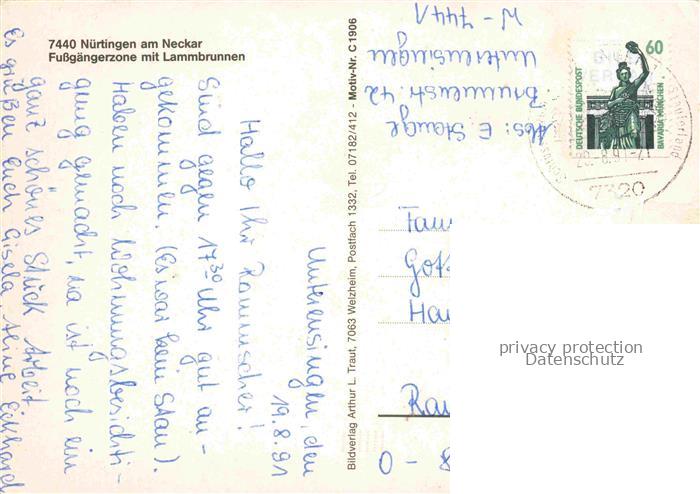 7440 Nürtingen am Neckar
Fußgängerzone mit Lammbrunnen
Unterensingen, den
19.8.91
Hallo Ihr Rammischer!
Sind gegen 17³⁰ Uhr gut an-
gekommen. (Es war kein Stau).
Haben noch Wohnungsbesichti-
gung gemacht, na ist noch ein
ganz schönes Stück Arbeit
Es grüßen Euch Gisela Eckhard
Bildverlag Arthur L. Traut, 7063 Welzheim, Postfach 1332, Tel. 07182/412 - Motiv-Nr. C 1906
Abs: E. Stange
Brunnenstr. 42
Unterensingen
W-7441
60
DEUTSCHE BUNDESPOST
BAVARIA MÜNCHEN
Stauferland
7320
Fam
Got
Hau
Ra
8 - 0
privacy protection
Datenschutz